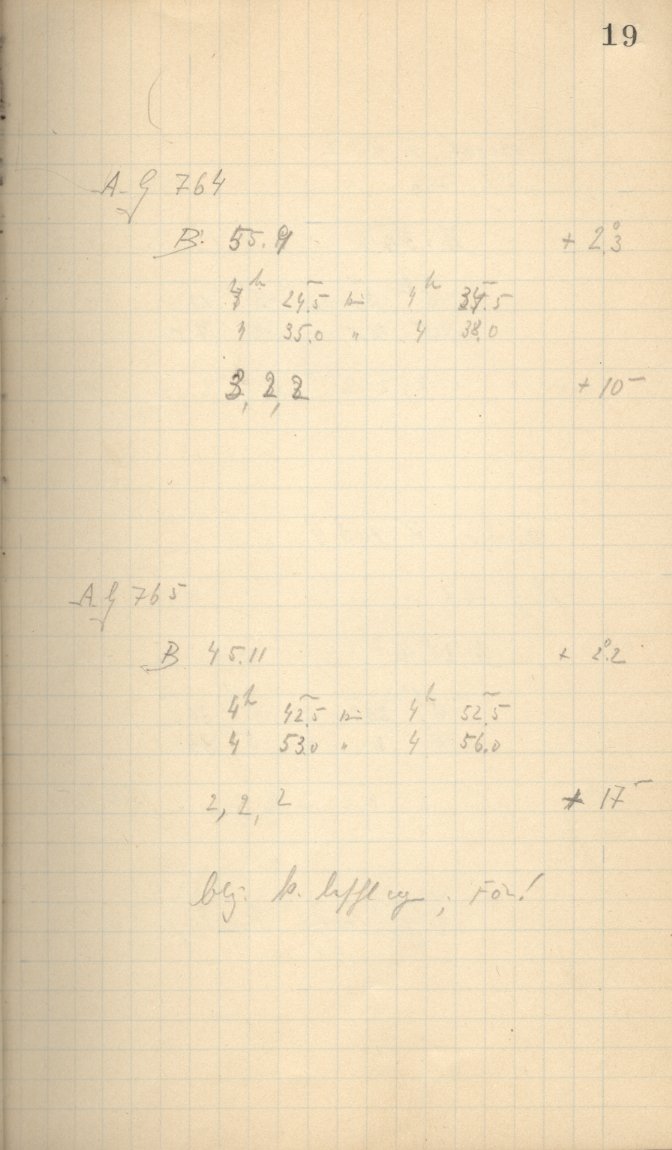 19
AG 764
B. 55.9 + 2°.3
4h 24m.5 bis 4h 34m.5
4 35.0 " 4 38.0
3, 2, 2 + 10m
AG 765
B 45.11 + 2°.2
4h 42m.5 bis 4h 52m.5
4 53.0 " 4 56.0
2, 2, 2 + 17m